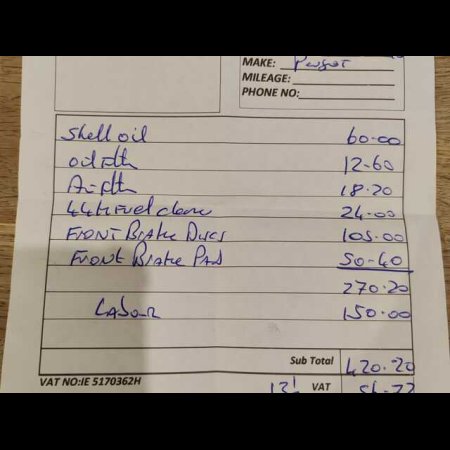 MAKE: Peugeot
MILEAGE:
PHONE NO:
Shell oil 60.00
oil filth 12-60
Air filth 18.20
Fuel 24.00
FRONT BRAKE DISCS 105.00
FRONT BRAKE PAD 50-40
270.20
LABOUR 150.00
Sub Total 420.20
VAT NO:IE 5170362H
VAT